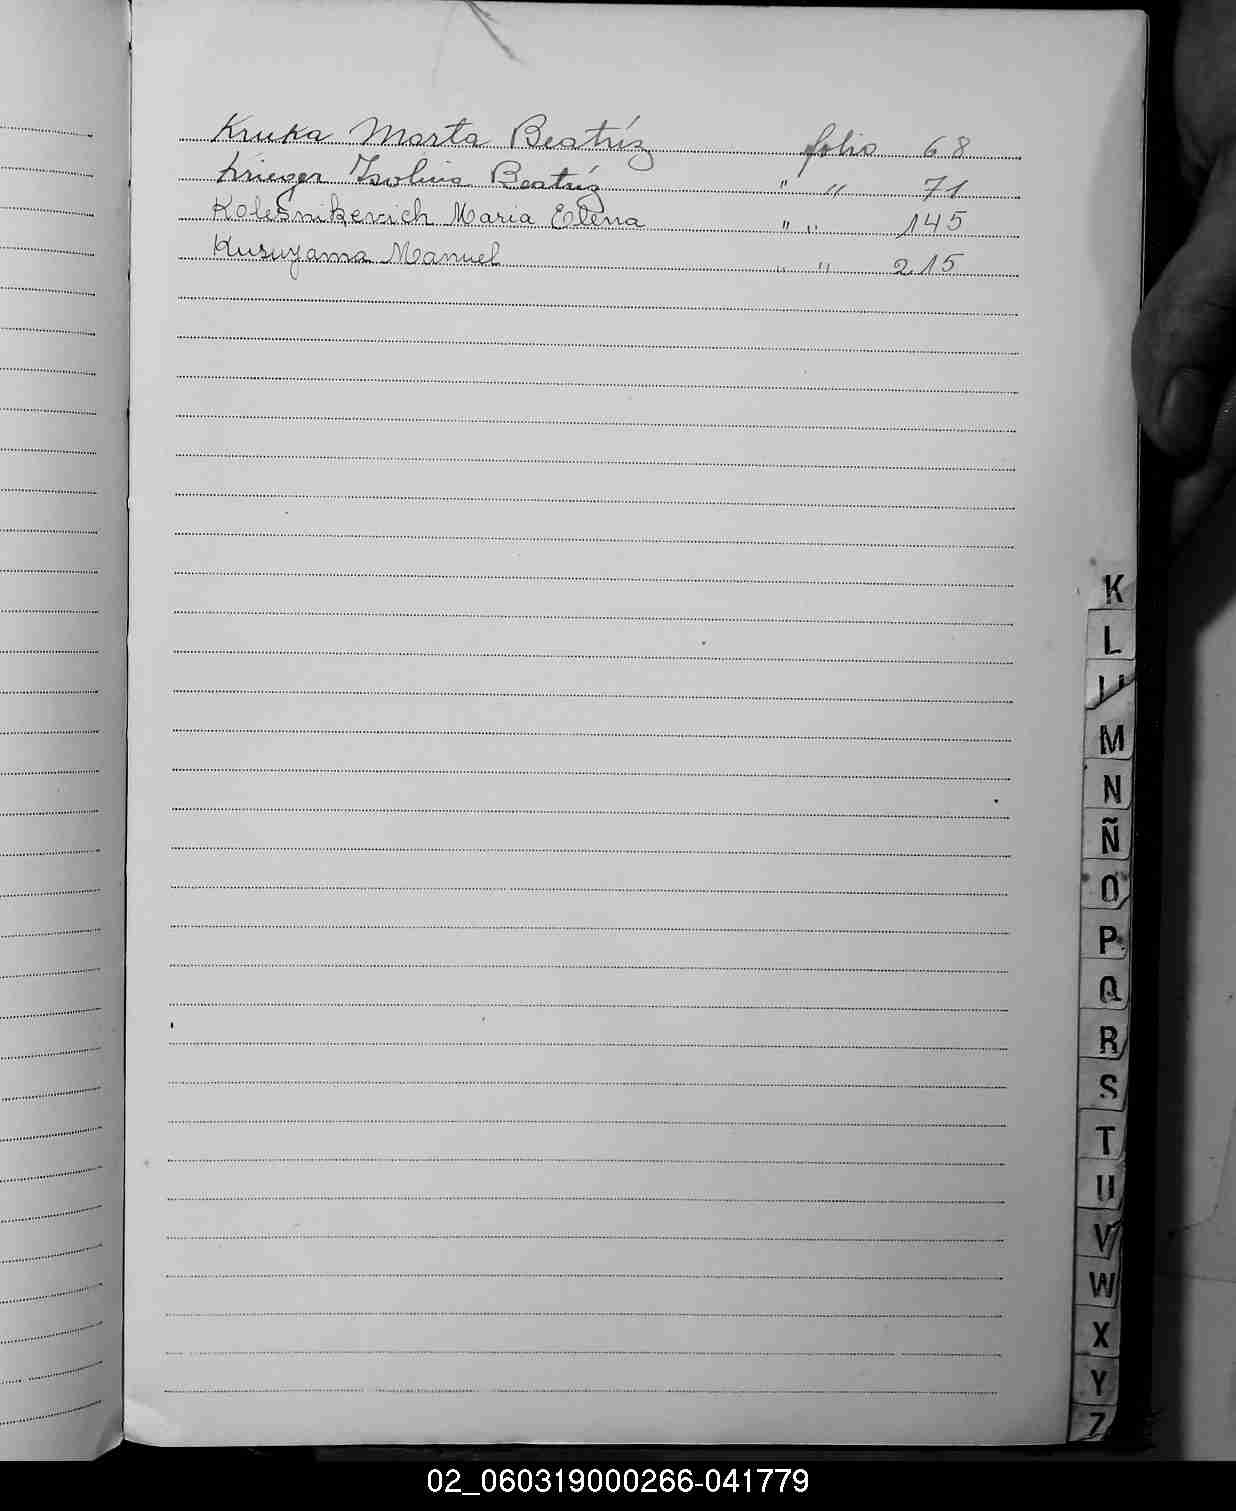 Kruka Marta Beatríz folio 68
Krieger Isolina Beatríz " " 71
Kolesnikevich Maria Elena " " 145
Kusuyama Manuel " " 215
K
L
M
N
Ñ
O
P
Q
R
S
T
U
V
W
X
Y
Z
02_060319000266-041779